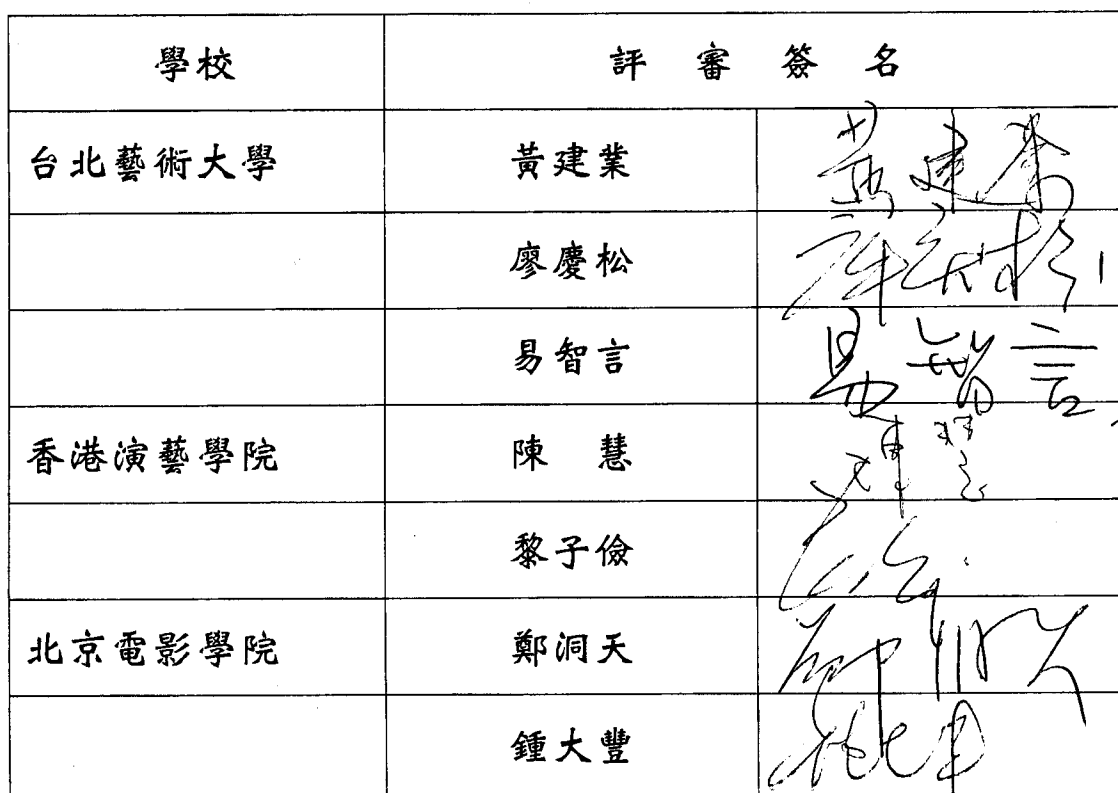 學校 評審簽名
台北藝術大學 黃建業 黃建業
廖慶松
易智言 易智言
香港演藝學院 陳慧 陳慧
黎子儉
北京電影學院 鄭洞天
鍾大豐